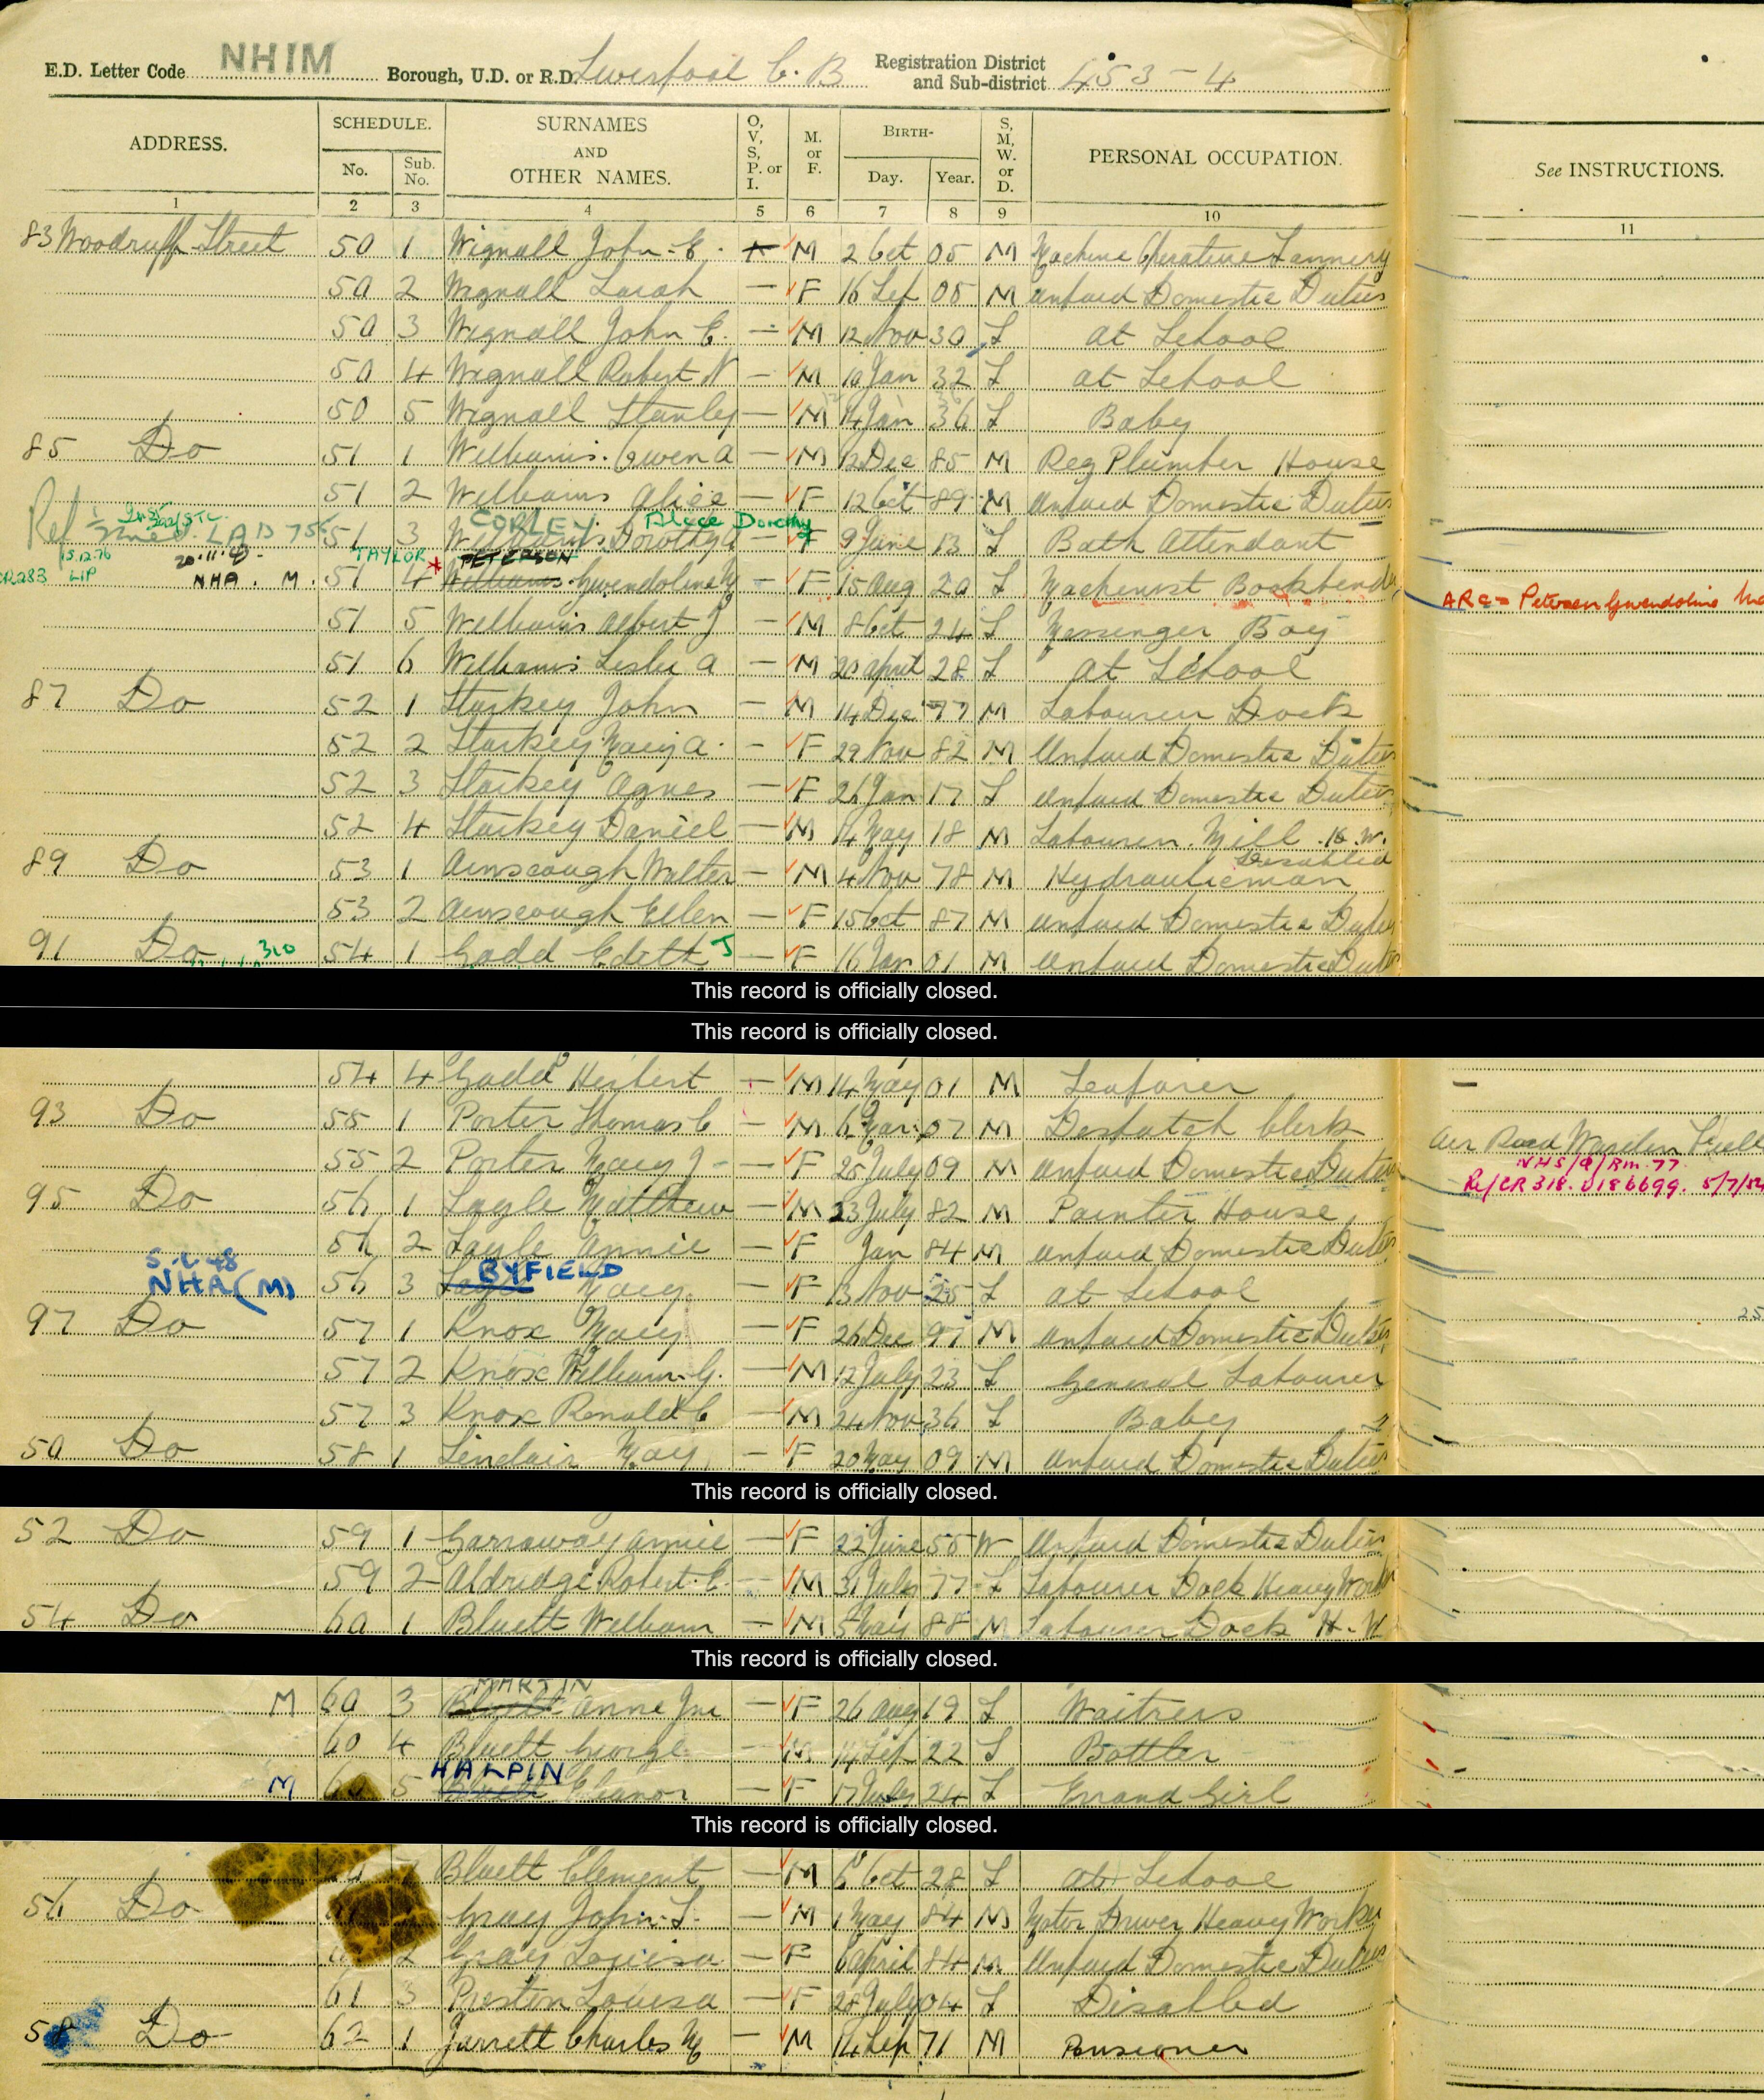 E.D. Letter Code NHIM Borough, U.D. or R.D. Liverpool C.B Registration District and Sub-district 453-4
ADDRESS. SCHEDULE. No. Sub. No. SURNAMES AND OTHER NAMES. O, V, S, P. or I. M. or F. BIRTH- Day. Year. S, M, W. or D. PERSONAL OCCUPATION. See INSTRUCTIONS.
1 2 3 4 5 6 7 8 9 10 11
83 Woodruff Street 50 1 Wignall John E. M 2 Oct 05 M Machine Operative Tannery
50 2 Wignall Sarah — F 16 Sep 05 M Unpaid Domestic Duties
50 3 Wignall John E. — M 12 Nov 30 S at School
50 4 Wignall Robert N — M 10 Jan 32 S at School
50 5 Wignall Stanley — M 14 Jan 36 S Baby
85 Do 51 1 Williams Owen A — M 12 Dec 85 M Reg Plumber House
51 2 Williams Alice — F 12 Oct 89 M Unpaid Domestic Duties
CORLEY Alice Dorothy
Ref LAB 75 51 3 Williams Dorothy A F 9 June 13 S Bath Attendant
15.12.76 20.11.43 TAYLOR PETERSON
CR283 LIP NHA. M. 51 4 Williams Gwendoline M — F 15 Aug 20 S Machinist Bookbinder ARC = Petersen Gwendoline
51 5 Williams Albert J — M 8 Oct 24 S Messenger Boy
51 6 Williams Leslie A — M 20 April 28 S at School
87 Do 52 1 Starkey John — M 14 Dec 77 M Labourer Dock
52 2 Starkey Mary A. — F 29 Nov 82 M Unpaid Domestic Duties
52 3 Starkey Agnes — F 26 Jan 17 S Unpaid Domestic Duties
52 4 Starkey Daniel — M 14 May 18 M Labourer Mill H.W.
Disabled
89 Do 53 1 Ainscough Walter — M 4 Nov 78 M Hydraulicman
53 2 Ainscough Ellen — F 15 Oct 87 M Unpaid Domestic Duties
91 Do 310 54 1 Gadd Edith J — F 16 Jan 01 M Unpaid Domestic Duties
This record is officially closed.
This record is officially closed.
54 4 Gadd Herbert — M 14 May 01 M Seafarer —
93 Do 55 1 Porter Thomas C — M 6 Mar 07 M Despatch Clerk Air Raid Warden
55 2 Porter Mary J — F 25 July 09 M Unpaid Domestic Duties NHS/9/Rm.77
95 Do 56 1 Sayle Matthew — M 23 July 82 M Painter House Re/CR 318. 0186699. 5/7/54
56 2 Sayle Annie — F Jan 84 M Unpaid Domestic Duties
48 BYFIELD
NHA (M) 56 3 Sayle Mary — F 13 Nov 25 S at School
97 Do 57 1 Knox Mary — F 26 Dec 97 M Unpaid Domestic Duties 25
57 2 Knox William G. — M 12 July 23 S General Labourer
57 3 Knox Ronald C — M 24 Nov 36 S Baby
50 Do 58 1 Sinclair May — F 20 May 09 M Unpaid Domestic Duties
This record is officially closed.
52 Do 59 1 Garraway Annie — F 22 June 55 W Unpaid Domestic Duties
59 2 Aldridge Robert E. — M 31 July 77 S Labourer Dock Heavy Work
54 Do 60 1 Bluett William — M 5 May 88 M Labourer Dock H.W
This record is officially closed.
MARTIN
M 60 3 Bluett Anne — F 26 Aug 19 S Waitress
60 4 Bluett George — M 14 Sep 22 S Bottler
HALPIN
M 60 5 Bluett Eleanor — F 17 July 24 S Errand Girl
This record is officially closed.
Bluett Clement — M 6 Oct 28 S at School
56 Do Gray John S. — M 1 May 84 M Motor Driver Heavy Worker
2 Gray Louisa — F 6 April 84 M Unpaid Domestic Duties
61 3 Preston Louisa — F 28 July 04 S Disabled
58 Do 62 1 Jarrett Charles W — M 14 Sep 71 M Pensioner